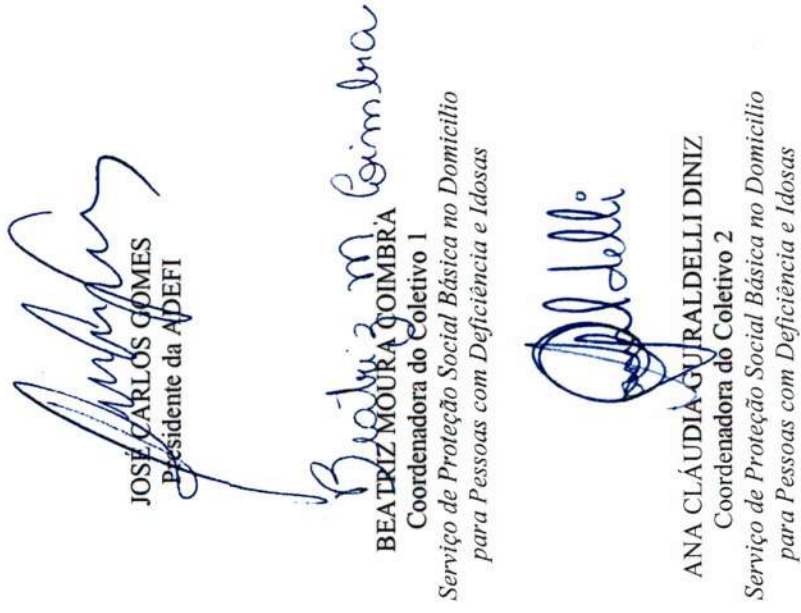 JOSÉ CARLOS GOMES
Presidente da ADEFI
Beatriz m Coimbra
BEATRIZ MOURA COIMBRA
Coordenadora do Coletivo 1
Serviço de Proteção Social Básica no Domicílio
para Pessoas com Deficiência e Idosas
ANA CLÁUDIA GUIRALDELLI DINIZ
Coordenadora do Coletivo 2
Serviço de Proteção Social Básica no Domicílio
para Pessoas com Deficiência e Idosas